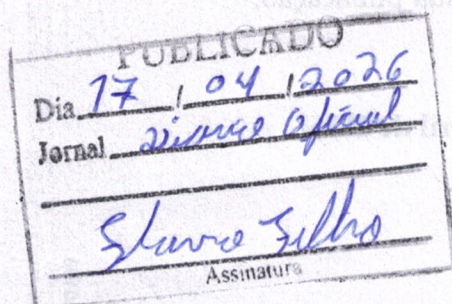 PUBLICADO
Dia 17 / 04 / 2026
Jornal Diário Oficial
Filho
Assinatura